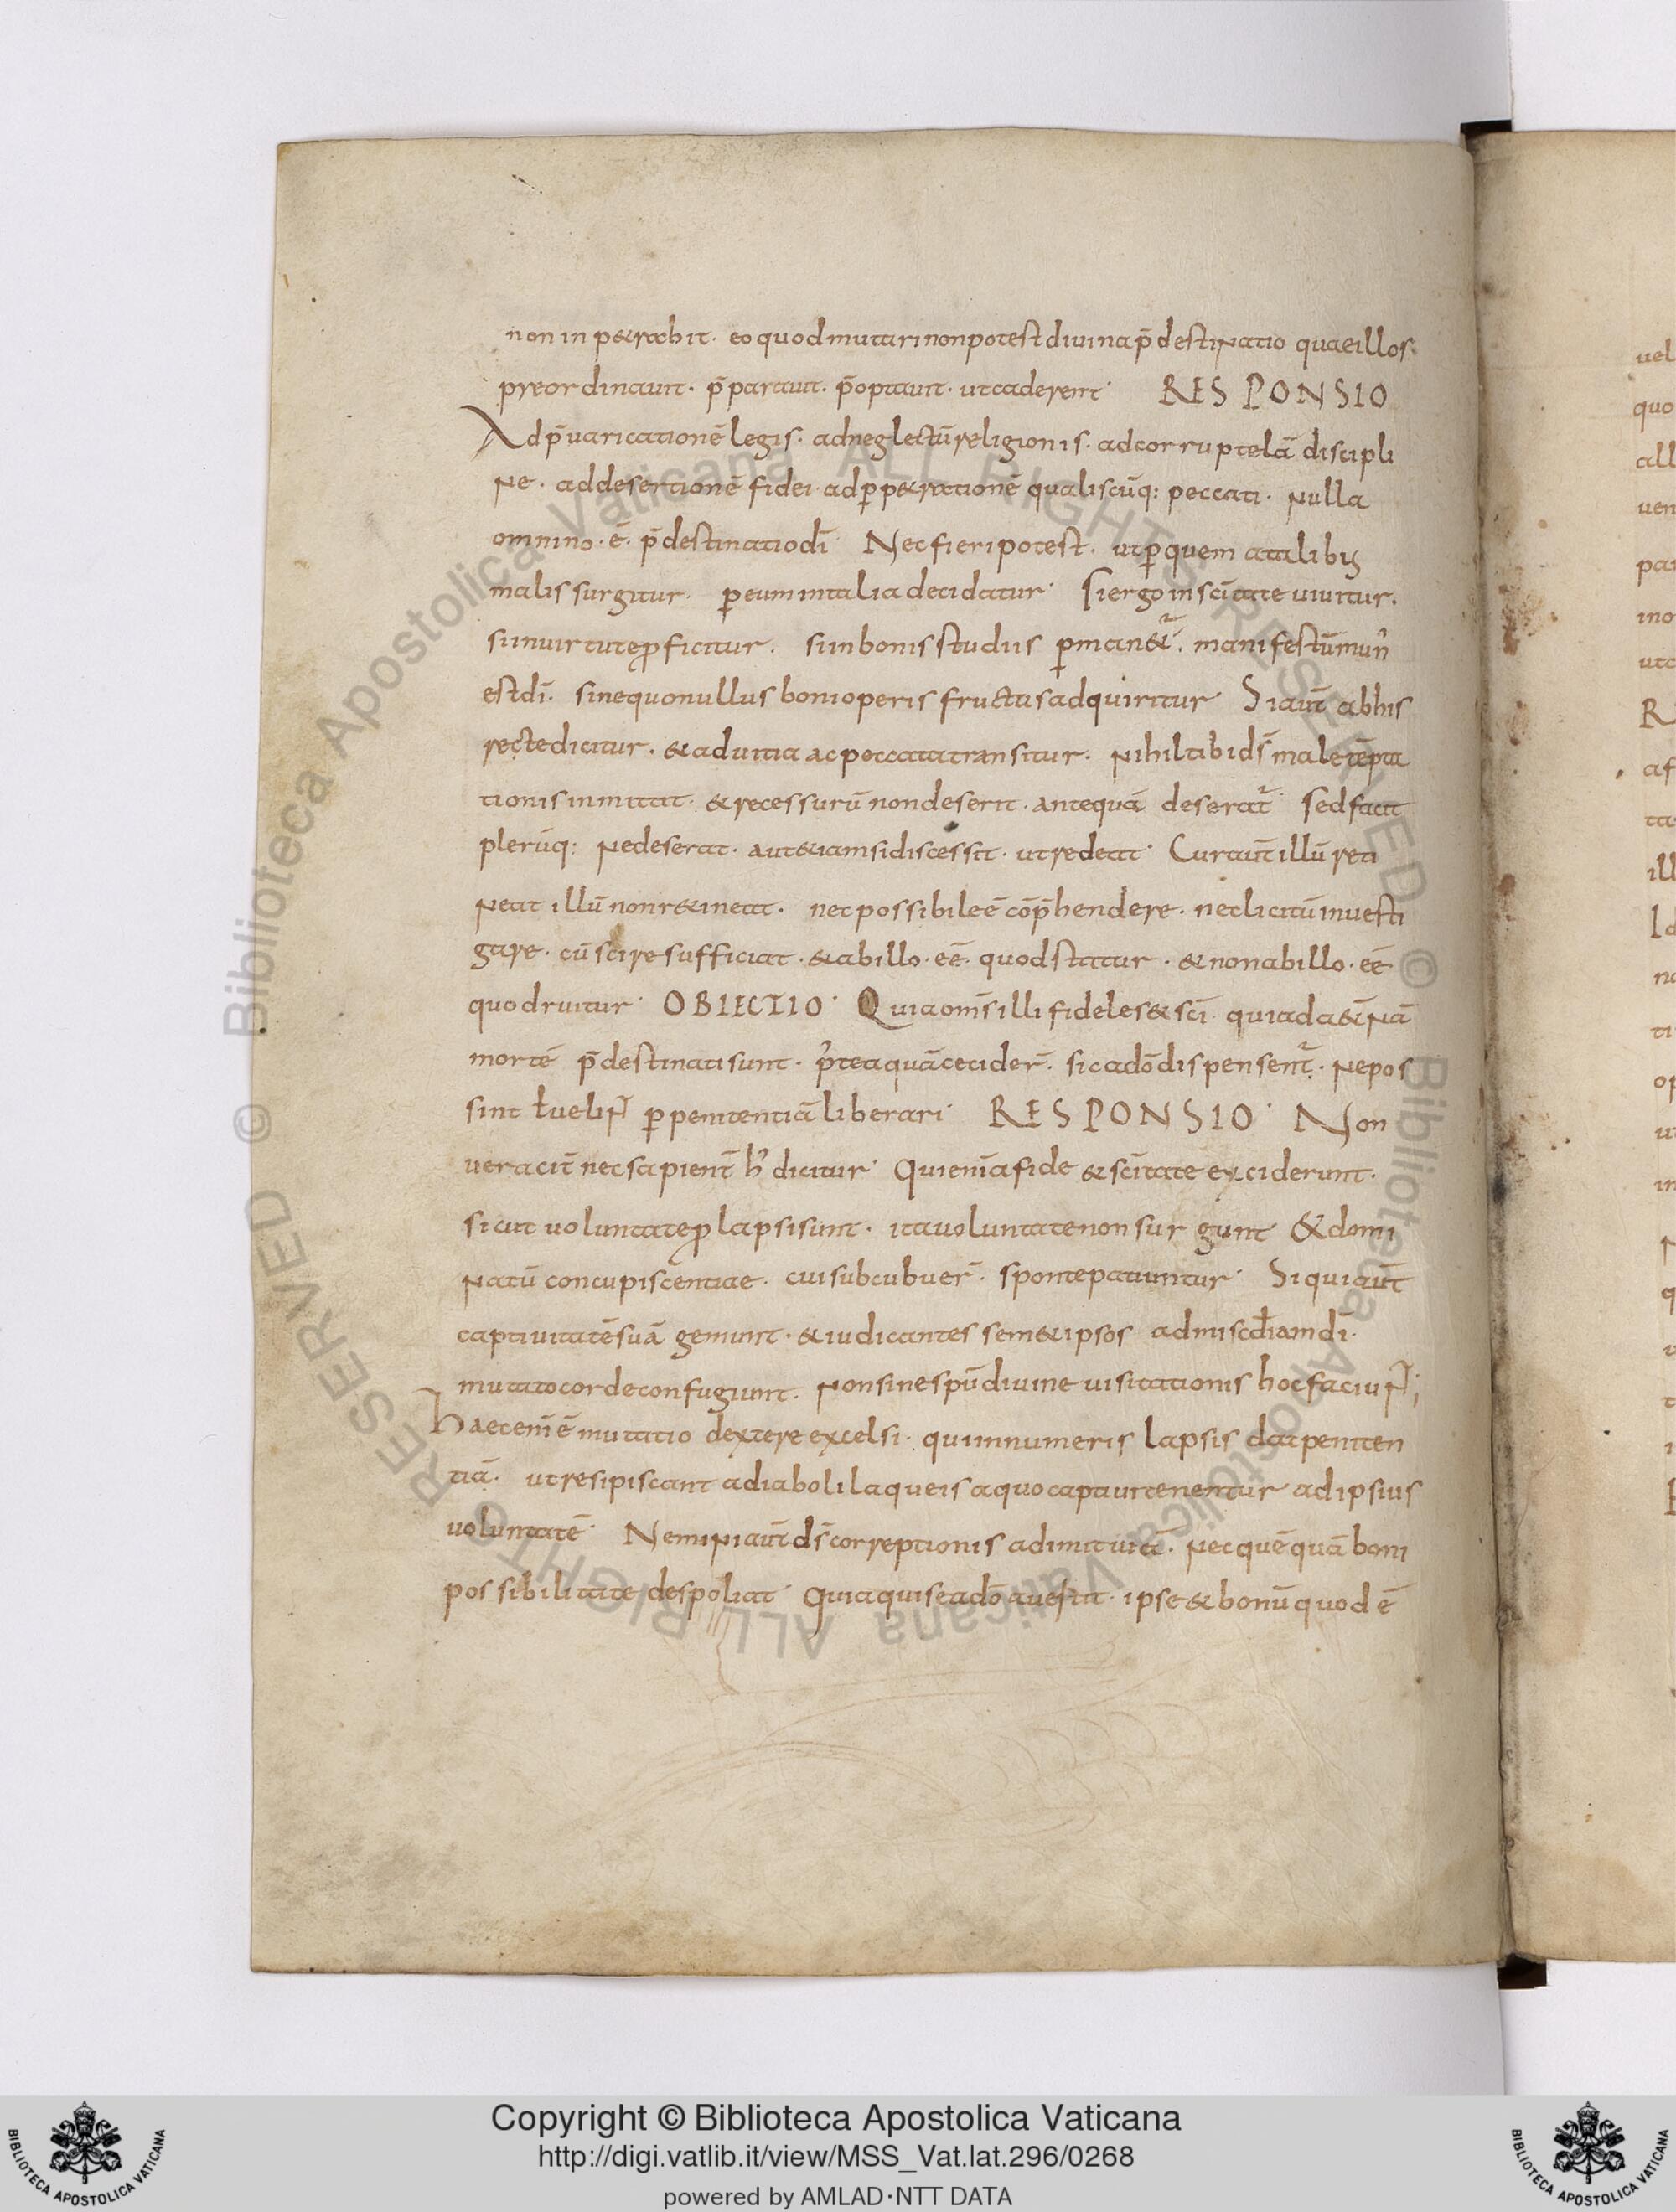 non inp&rabit· eo quod mutari non potest diuina p̄destinatio quae illos·
preordinauit· p̄parauit· p̄optauit· ut caderent· RESPONSIO
Ad p̄uaricationē legis· ad neglectū religionis· ad corruptelā discipli
ne· ad desertionē fidei· ad ꝑp&rationē qualiscūq: peccati· nulla
omnino·ē· p̄destinatio dī Nec fieri potest· ut ꝑ quem a talibꝫ
malis surgitur· ꝑ eum in talia decidatur· Si ergo in scītate uiuitur·
si in uirtute ꝓficitur· si in bonis studiis ꝑman&ur· manifestū mun̄
est dī· sine quo nullus boni operis fructus adquiritur Si aut̄ ab his
recte dicitur· & ad uitia ac peccata transitur· nihil tibi ds̄ male tēpta
tionis inmitat· & recessurū non deserit· antequā deserat᷑ Sed facit
plerūq: ne deserat· aut &iam si discessit· ut redeat· Cur aut̄ illū reti
neat illū non r&ineat· nec possibile ē cōp̄hendere· nec licitū inuesti
gare· cū scire sufficiat· & ab illo·eē· quod statur· & non ab illo·eē
quod ruitur· OBIECTIO· Quia om̄s illi fideles & scī quia da&̄nā
mortē p̄destinati sunt· p̄tea quā cecider̄· sic a dō dispensent᷑· ne pos
sint ł uelint ꝑ penitentiā liberari· RESPONSIO· Non
ueracit̄ nec sapient̄ h̄ dicitur· Qui enī a fide & scītate exciderunt·
sicut uoluntate ꝓlapsi sunt· ita uoluntate non surgunt &domi
natū concupiscentiae· cui subcubuer̄· sponte patiuntur· Si qui aut̄
captiuitatē suā gemunt· & iudicantes sem&ipsos ad miscd̄iam dī·
mutato corde confugiunt· non sine spū diuine uisitationis hoc faciunt;
Haec enī ē mutatio dextere excelsi· qui innumeris lapsis dat peniten
tiā· ut resipiscant a diaboli laqueis a quo captiui tenentur ad ipsius
uoluntatē· Nemini aut̄ ds̄ correptionis adimit uitā· nec quēquā boni
possibilitate despoliat Quia qui se a dō auertit· ipse & bonū quod ē
uel
quo
all
uen
par
ino
utc
R
af
ta
ill
Copyright © Biblioteca Apostolica Vaticana
http://digi.vatlib.it/view/MSS_Vat.lat.296/0268
powered by AMLAD·NTT DATA
BIBLIOTECA APOSTOLICA VATICANA
BIBLIOTECA APOSTOLICA VATICANA
© Biblioteca Apostolica Vaticana ALL RIGHTS RESERVED © Biblioteca Apostolica Vaticana ALL RIGHTS RESERVED